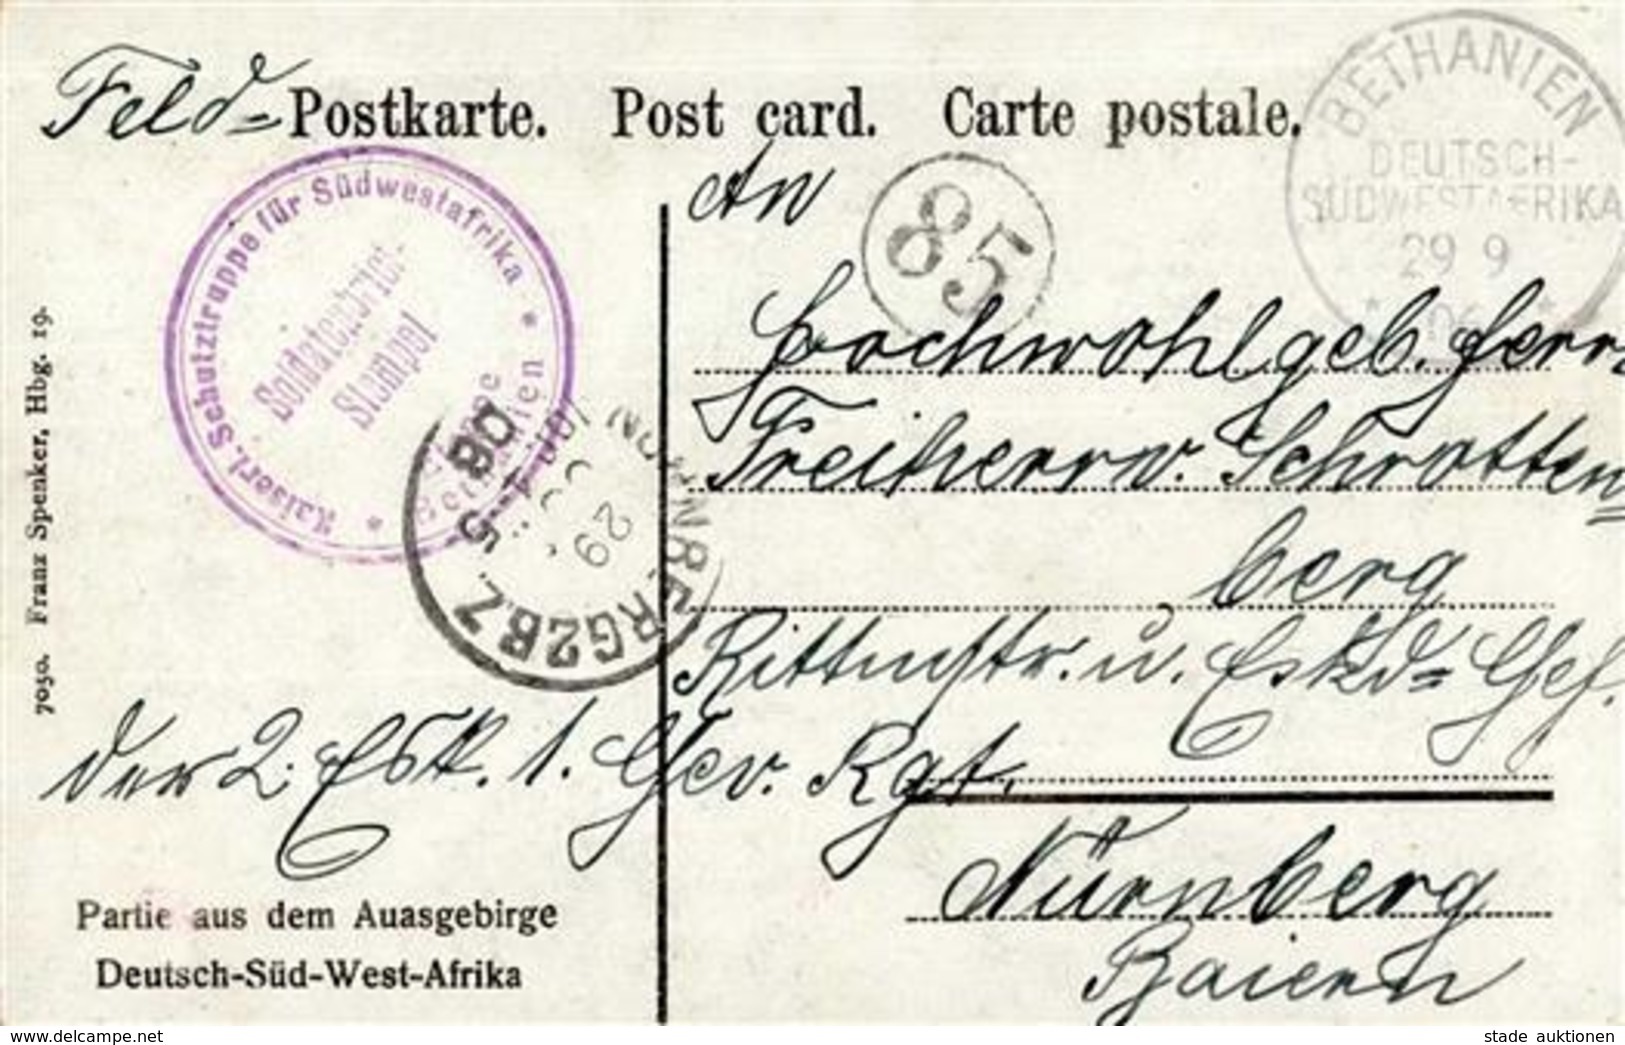 Feld= Postkarte. Post card. Carte postale.
BETHANIEN
DEUTSCH-
SÜDWESTAFRIKA
29 9
06
Kaiserl. Schutztruppe für Südwestafrika
Soldatenbrief-
Stempel
85
An
Hochwohlgeb. Herrn
Freiherrn v. Schrotten=
berg
Rittmstr. u. Eskd= Chef.
der 2. Esk. 1. Chev. Rgt.
Nürnberg
Baiern
NÜRNBERG 2 B.Z.
29
06
7050. Franz Spenker, Hbg. 19.
Partie aus dem Auasgebirge
Deutsch-Süd-West-Afrika
www.delcampe.net
stade auktionen